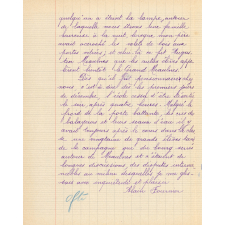 quelqu'un a éteint la lampe, autour
de laquelle nous étions une famille
heureuse à la nuit, lorsque mon père
avait accroché les volets de bois aux
portes vitrées; et celui-là ce fut Augus-
tin Meaulnes que les autres élèves appe-
lèrent bientôt le Grand Meaulnes.
Dès qu'il fut pensionnaire chez
nous c'est-à-dire dès les premiers jours
de décembre, l'école cessa d'être désertée
le soir, après quatre heures. Malgré le
froid de la porte battante, les cris des
balayeurs et leurs seaux d'eau, il y
avait toujours après le cours dans la clas-
se une vingtaine de grands élèves tant
de la campagne que du bourg serrés
autour de Meaulnes et c'étaient de
longues discussions des disputes intermi-
nables au milieu desquelles je me glis-
sais avec inquiétude et plaisir.
Alain Fournier